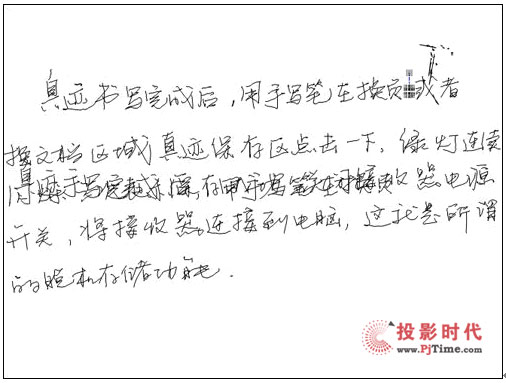 真迹书写完成后,用手写笔在换页或者
换文档区域或真迹保存区点击一下,绿灯连续
接收器电源
开关,将接收器连接到电脑,这就是所谓
的脱机存储功能.
投影时代
www.PjTime.com